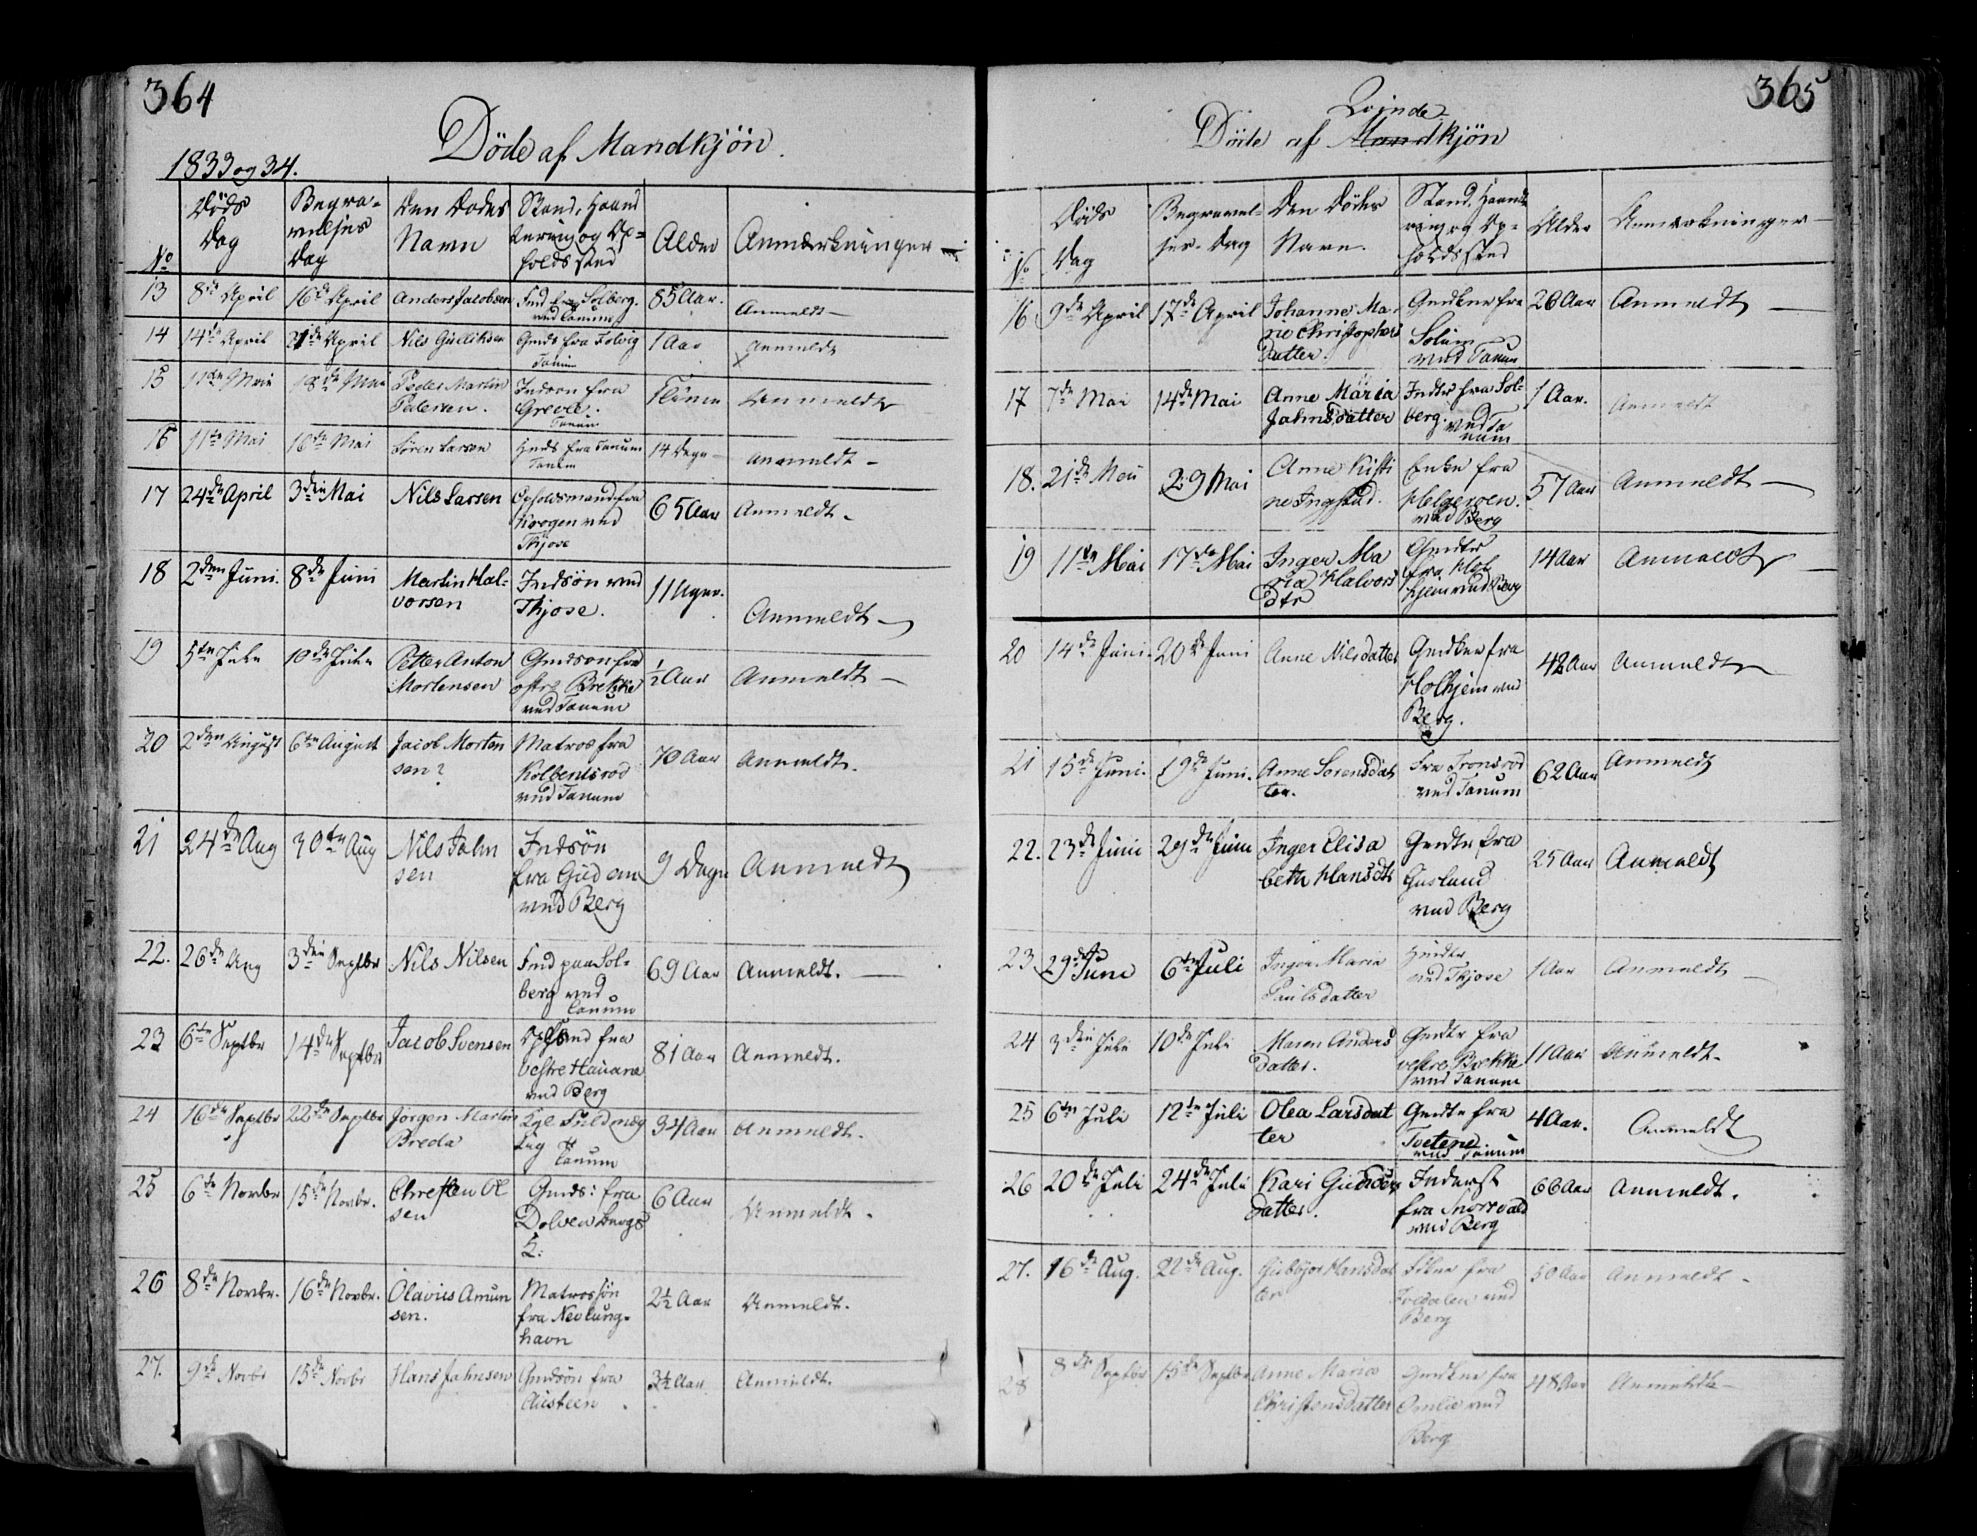 364
Döde af Mandkjön.
1833 og 34.
No | Döds Dag | Begravelses Dag | Den Dödes Navn | Stand, Haandtering og Opholdssted | Alder | Anmærkninger
13 | 8de April | 16de April | Anders Jacobsen | Ind fra Solberg ved Tanum | 85 Aar. | Anmeldt
14 | 14de April | 21de April | Nils Gulliksen | Gmds fra Tanum | 1 Aar | Anmeldt
15 | 11te Mai | 18de Mai | Peder Martin Pedersen. | Indson fra Grevle. Tanum | Anmeldt
16 | 11te Mai | 16de Mai | Sören Larsen | fra Tanum Tanum | 14 Dage | Anmeldt
17 | 24de April | 3die Mai | Nils Larsen | Opholdsmand fra Krogen ved Thjose | 65 Aar | Anmeldt.
18 | 2den Juni. | 8de Juni | Martin Halvorsen | Indsön ved Thjose. | 11 Uger. | Anmeldt
19 | 5te Juli | 10de Juli | Petter Anton Mortensen | Gmdson fra ostre Brekke ved Tanum | ½ Aar | Anmeldt
20 | 2den August | 6te August | Jacob Mortensen? | Matros fra Kolbensrod ved Tanum | 70 Aar | Anmeldt.
21 | 24de Aug | 30te Aug | Nils Johnsen | Indsön fra ved Berg | 9 Dage | Anmeldt
22. | 26de Aug | 3die Septbr | Nils Nilsen | Ind paa Solberg ved Tanum | 69 Aar | Anmeldt.
23 | 6te Septbr | 14de Septbr | Jacob Svensen | fra vestre Hauane ved Berg | 81 Aar | Anmeldt.
24 | 16de Septbr | 22de Septbr | Jörgen Martin Breda | Kgl Fuldmægtig Tanum | 34 Aar | Anmeldt.
25 | 6te Novbr | 15de Novbr. | Chresten Olsen | Gmds: fra Dolven | 6 Aar | Anmeldt.
26 | 8de Novbr. | 16de Novbr. | Olavus Amunsen. | Matrossön fra Nevlunghavn | 2½ Aar | Anmeldt.
27. | 9de Novbr | 15de Novbr | Hans Johnsen | Gmdsön fra | 3½ Aar | Anmeldt.
365
Qvinde
Döde af Mandkjön
No | Döds Dag | Begravelses-Dag | Den Dödes Navn. | Stand, Haandtering og Opholdssted | Alder | Anmærkninger
16 | 9de April | 17de April | Johanne Marie Christophersdatter. | Gmdkne fra Solum ved Tanum | 26 Aar | Anmeldt
17 | 7de Mai | 14de Mai | Anne Maria Johnsdatter | Inddtr fra Solberg. ved Tanum | 1 Aar. | Anmeldt
18. | 21de Mai | 29 Mai | Anne Kistine Ingstad. | Enke fra Helgeroen. ved Berg | 57 Aar | Anmeldt
19 | 11te Mai | 17de Mai | Inger Maria Halvorsdtr | Gmdtr fra Holhjem ved Berg | 14 Aar | Anmeldt
20 | 14de Juni. | 20de Juni | Anne Nilsdatter | Gmdkne fra Holhjem ved Berg. | 42 Aar | Anmeldt
21 | 15de Juni. | 19de Juni. | Anne Sorensdatter. | fra Tronsrod ved Tanum | 62 Aar | Anmeldt
22. | 23de Juni | 29de Juni | Inger Elisabeth Hansdtr | Gmdtr fra Gusland ved Berg | 25 Aar | Anmeldt
23 | 29de Juni | 6te Juli | Ingen Maria Paulsdatter | ved Thjose | 1 Aar | Anmeldt
24 | 3die Juli | 10de Juli | Maren Andersdatter. | Gmdtr fra vestre Brekke ved Tanum | 11 Aar | Anmeldt.
25 | 6te Juli | 12te Juli | Olea Larsdatter | Gmdtr fra Tvetene. ved Tanum | 4 Aar. | Anmeldt
26 | 20de Juli | 24de Juli | Kari Gundersdatter. | Inderst fra ved Berg | 66 Aar | Anmeldt.
27. | 16de Aug. | 22de Aug. | Hansdatter | fra ved Berg | 50 Aar | Anmeldt.
28 | 8de Septbr | 15de Septbr | Anne Maria Christensdatter | Gmdkne fra Omlie ved Berg | 48 Aar | Anmeldt